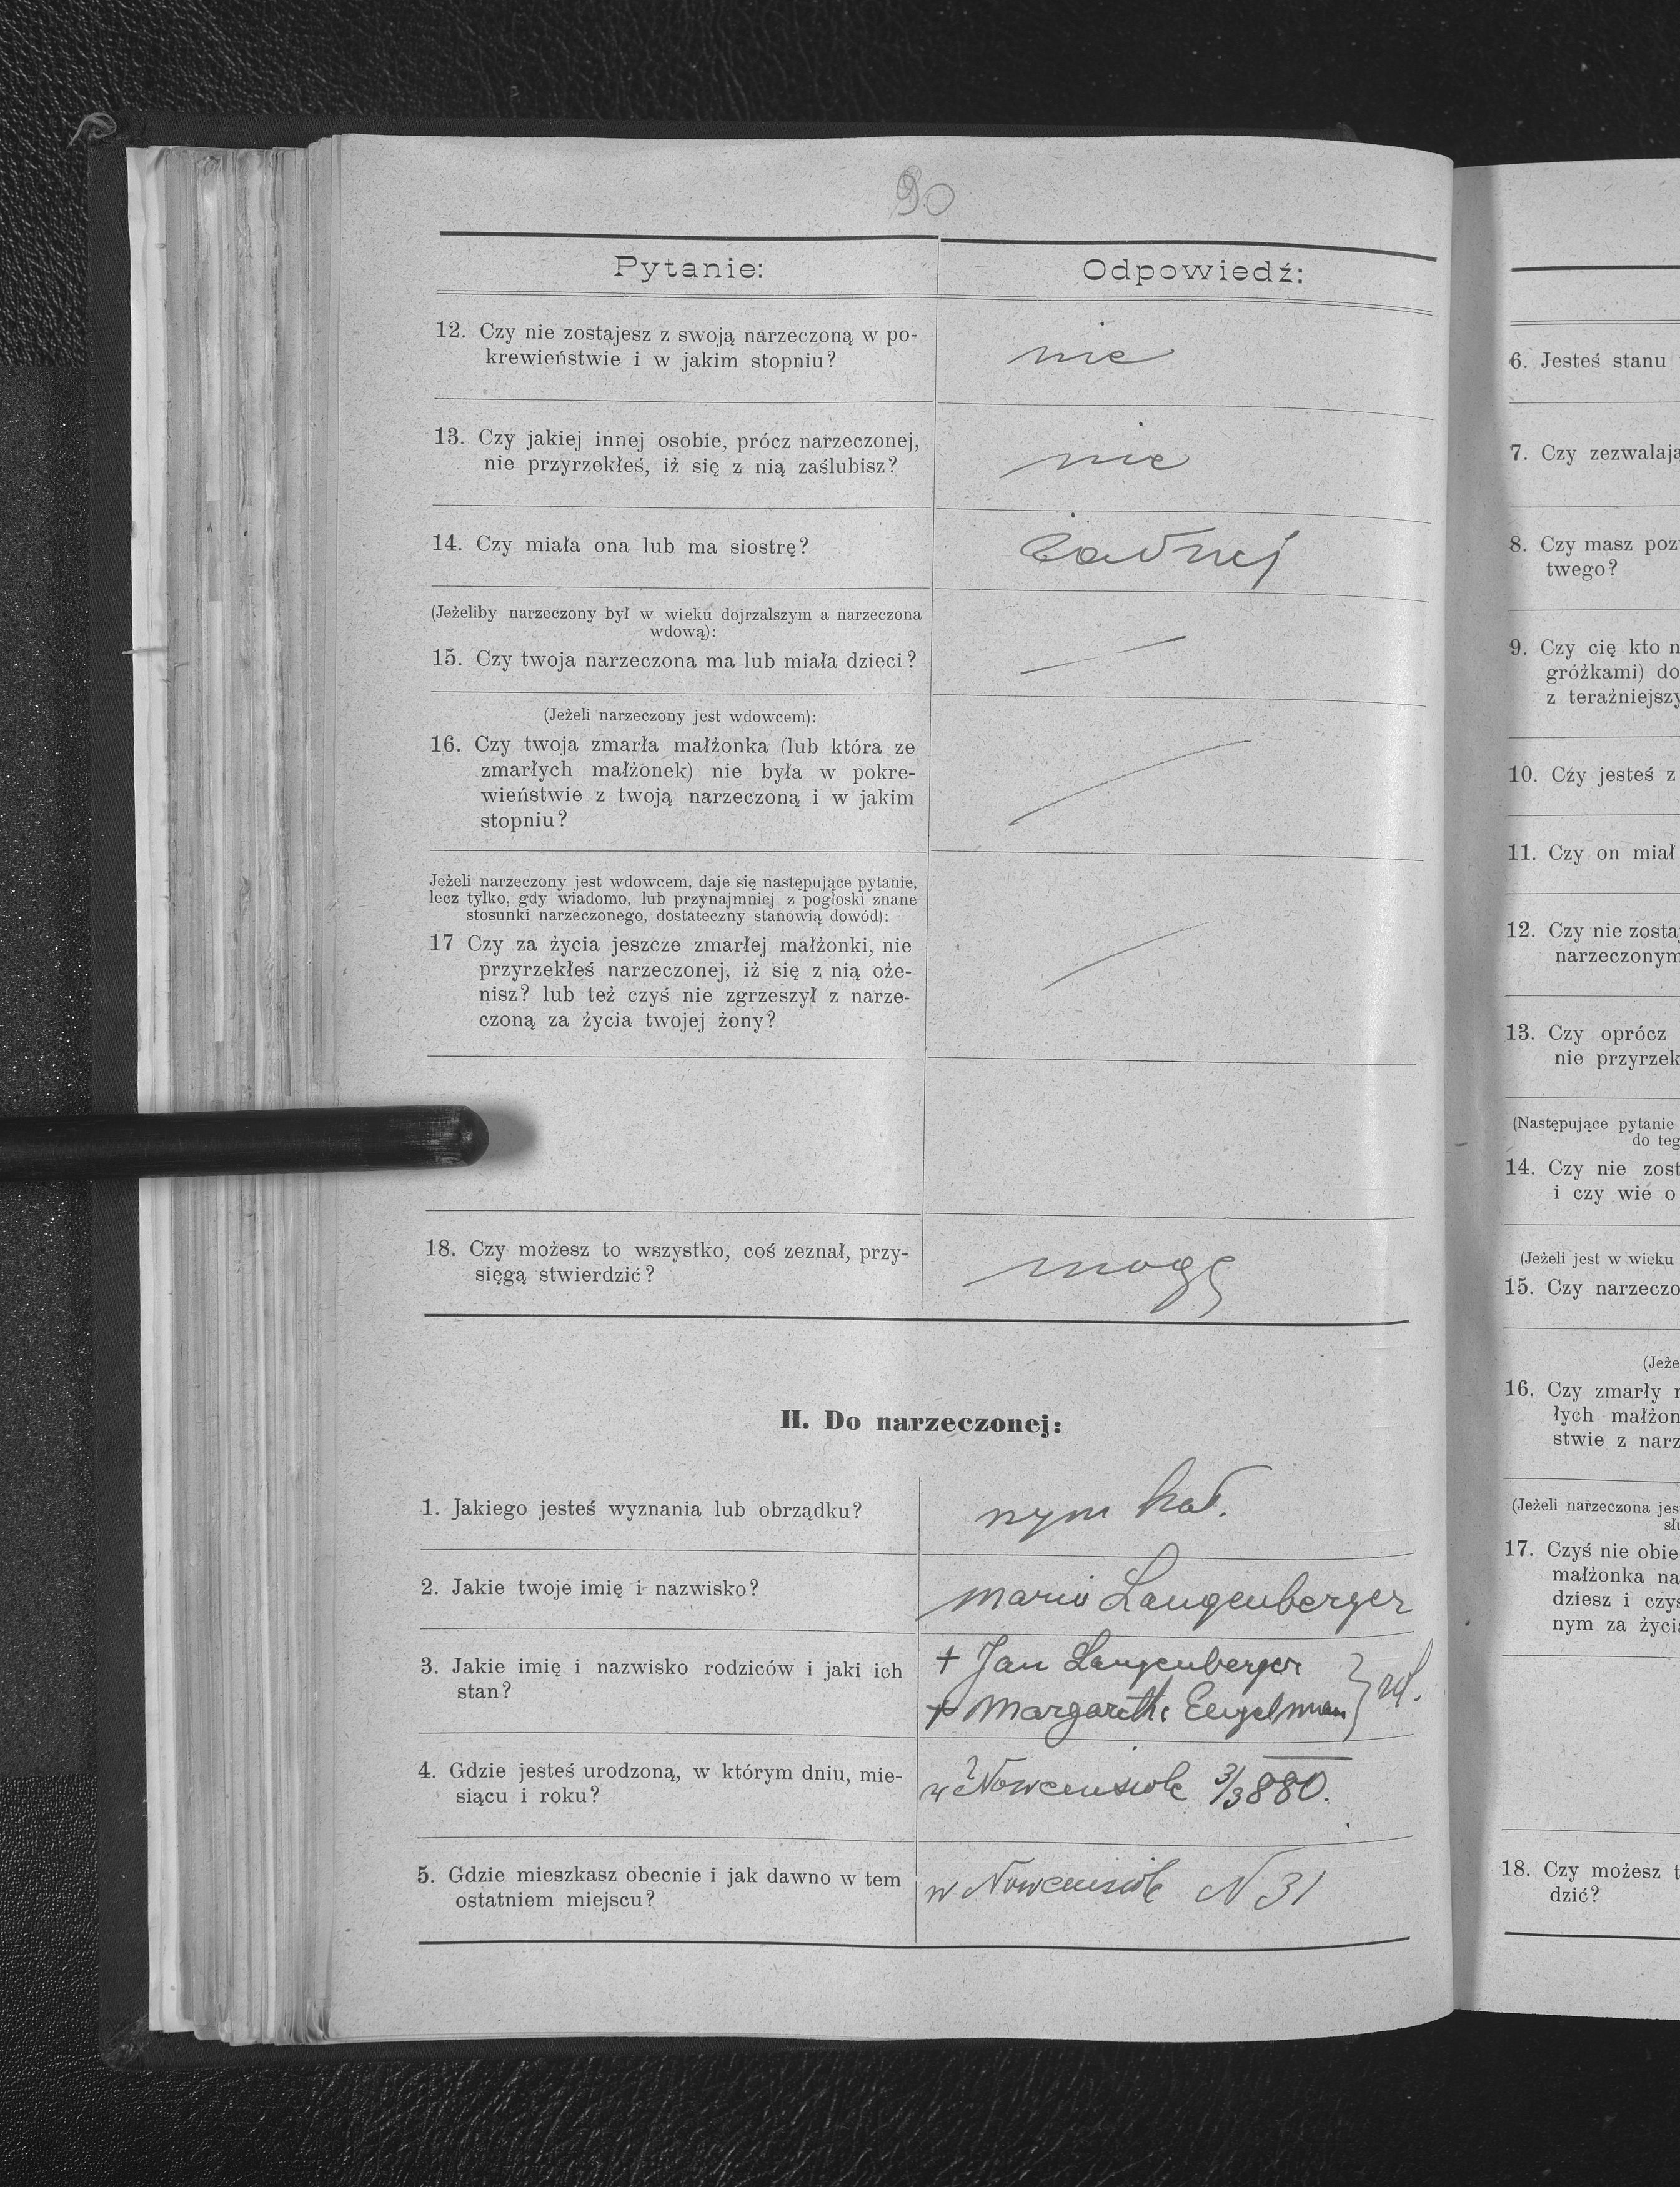 90
Pytanie:
Odpowiedź:
12. Czy nie zostajesz z swoją narzeczoną w po-
krewieństwie i w jakim stopniu?
nie
13. Czy jakiej innej osobie, prócz narzeczonej,
nie przyrzekłeś, iż się z nią zaślubisz?
nie
14. Czy miała ona lub ma siostrę?
żadnej
(Jeżeliby narzeczony był w wieku dojrzalszym a narzeczona
wdową):
15. Czy twoja narzeczona ma lub miała dzieci?
(Jeżeli narzeczony jest wdowcem):
16. Czy twoja zmarła małżonka (lub która ze
zmarłych małżonek) nie była w pokre-
wieństwie z twoją narzeczoną i w jakim
stopniu?
Jeżeli narzeczony jest wdowcem, daje się następujące pytanie,
lecz tylko, gdy wiadomo, lub przynajmniej z pogłoski znane
stosunki narzeczonego, dostateczny stanowią dowód):
17 Czy za życia jeszcze zmarłej małżonki, nie
przyrzekłeś narzeczonej, iż się z nią oże-
nisz? lub też czyś nie zgrzeszył z narze-
czoną za życia twojej żony?
18. Czy możesz to wszystko, coś zeznał, przy-
sięgą stwierdzić?
mogę
II. Do narzeczonej:
1. Jakiego jesteś wyznania lub obrządku?
rzym kat.
2. Jakie twoje imię i nazwisko?
Maria Langenberger
3. Jakie imię i nazwisko rodziców i jaki ich
stan?
+ Jan Langenberger
+ Margaretha Engelman
4. Gdzie jesteś urodzoną, w którym dniu, mie-
siącu i roku?
w Nowemsiole 3/3 880.
5. Gdzie mieszkasz obecnie i jak dawno w tem
ostatniem miejscu?
w Nowemsiole N 31
6. Jesteś stanu
7. Czy zezwalają
8. Czy masz poz
twego?
9. Czy cię kto n
gróżkami) do
z teraźniejszy
10. Czy jesteś z
11. Czy on miał
12. Czy nie zosta
narzeczonym
13. Czy oprócz
nie przyrzek
(Następujące pytanie
do teg
14. Czy nie zost
i czy wie o
(Jeżeli jest w wieku
15. Czy narzeczo
(Jeże
16. Czy zmarły
łych małżon
stwie z narz
(Jeżeli narzeczona jes
słu
17. Czyś nie obie
małżonka na
dziesz i czyś
nym za życia
18. Czy możesz t
dzić?